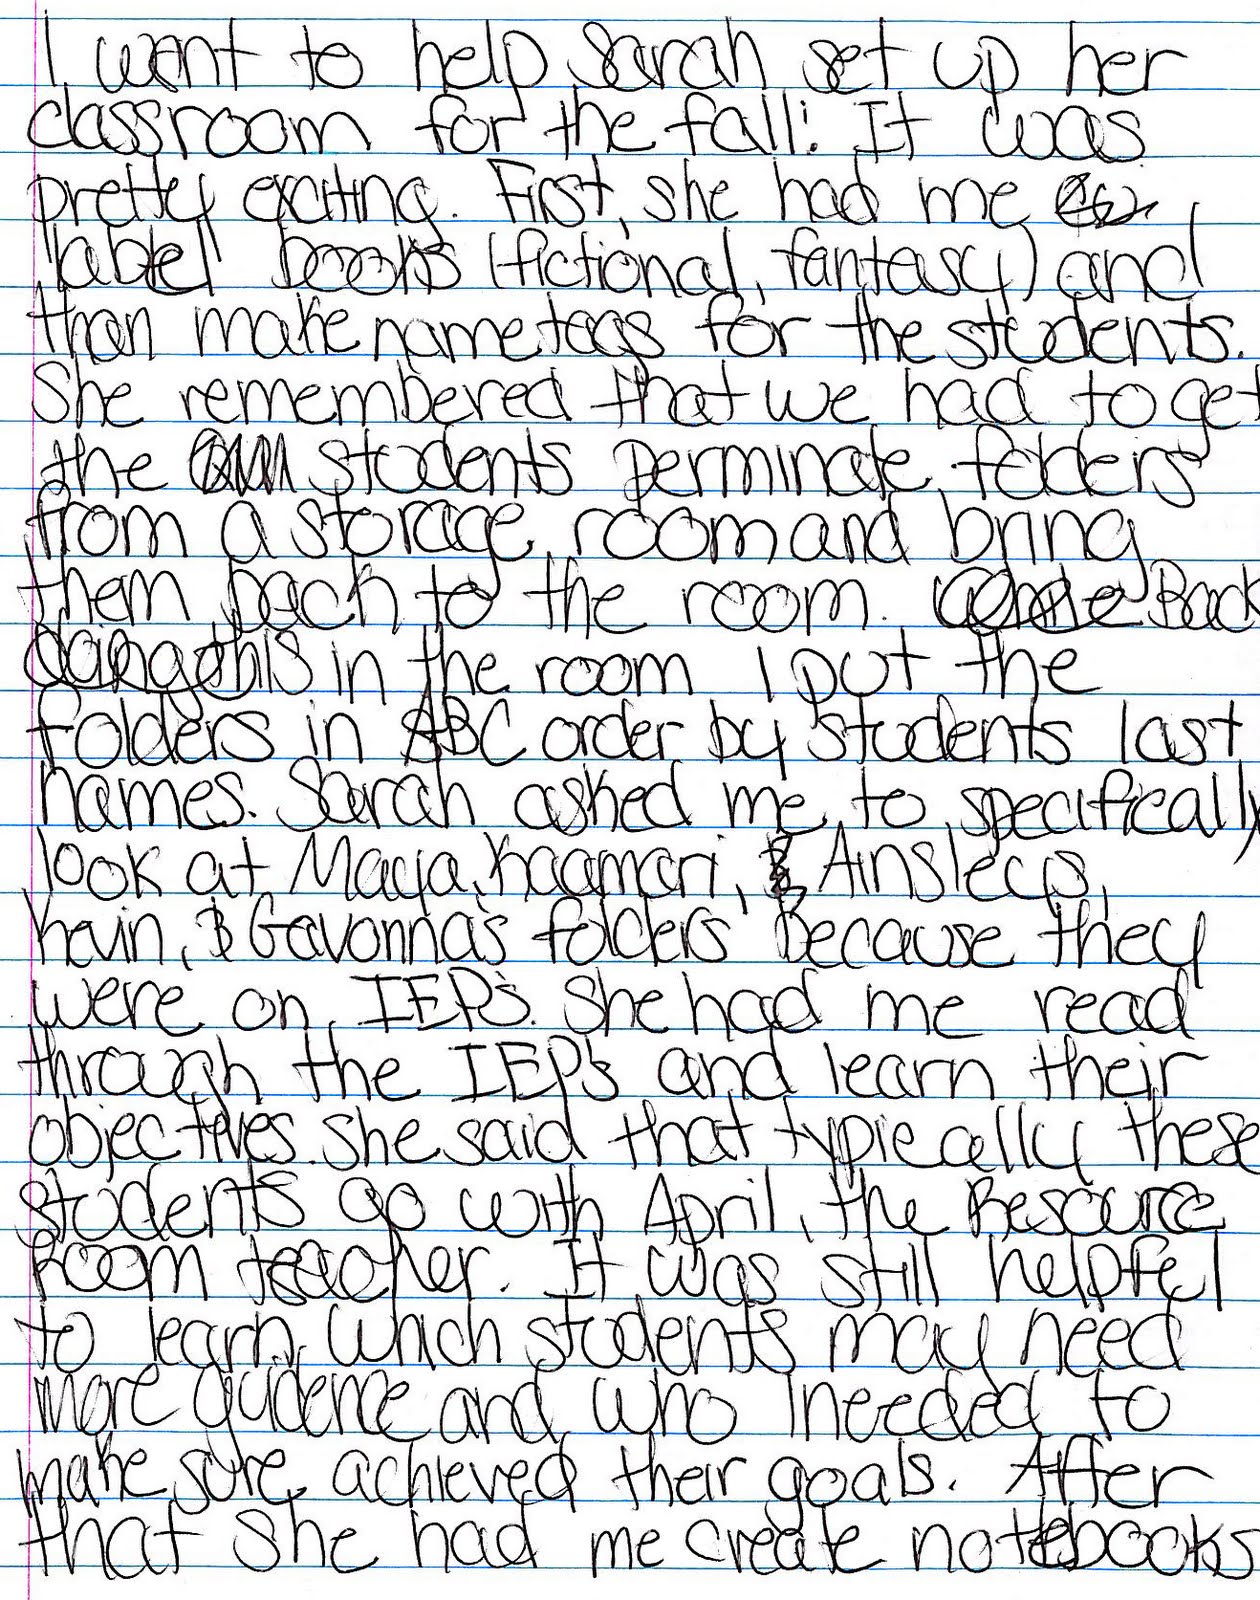 I went to help Sarah set up her
classroom for the fall! It was
pretty exciting. First, she had me
"label" books (fictional, fantasy) and
than make nametags for the students.
She remembered that we had to get
the students perminate folders
from a storage room and bring
them back to the room. Back
in the room I put the
folders in ABC order by students last
names. Sarah asked me to specifically
look at Maya, Kaamari, Ainsleys,
Kevin, & Gavonna's folders because they
were on IEP's. She had me read
through the IEP's and learn their
objectives. She said that typically these
students go with April, the Resource
Room teacher. It was still helpful
to learn which students may need
more guidence and who I needed to
make sure achieved their goals. After
that she had me create notebooks